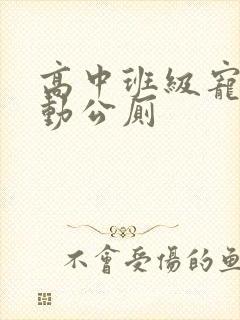 高中班級寵
動公廁
不會受傷的魚